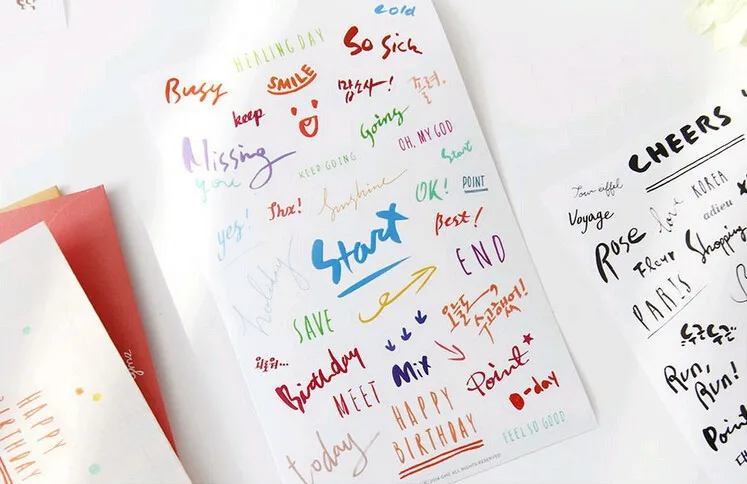 cold
HEALING DAY
So Sick
Busy
SMILE
keep
맙소사!
졸려.
Going
OH, MY GOD
Missing
you
KEEP GOING
Start
yes!
Thx!
Sunshine
OK!
POINT
Start
Best!
holiday
END
SAVE
오늘도
수고했어!
월요일...
Birthday
MEET
Mix
Point
D-day
today
HAPPY
BIRTHDAY
FEEL SO GOOD
ALL RIGHTS RESERVED
CHEERS
Tour eiffel
Voyage
love
KOREA
adieu
Rose
Fleur
Shopping
PARIS
두근두근
Run,
Run!
Point
HAPPY
BIRTHDAY